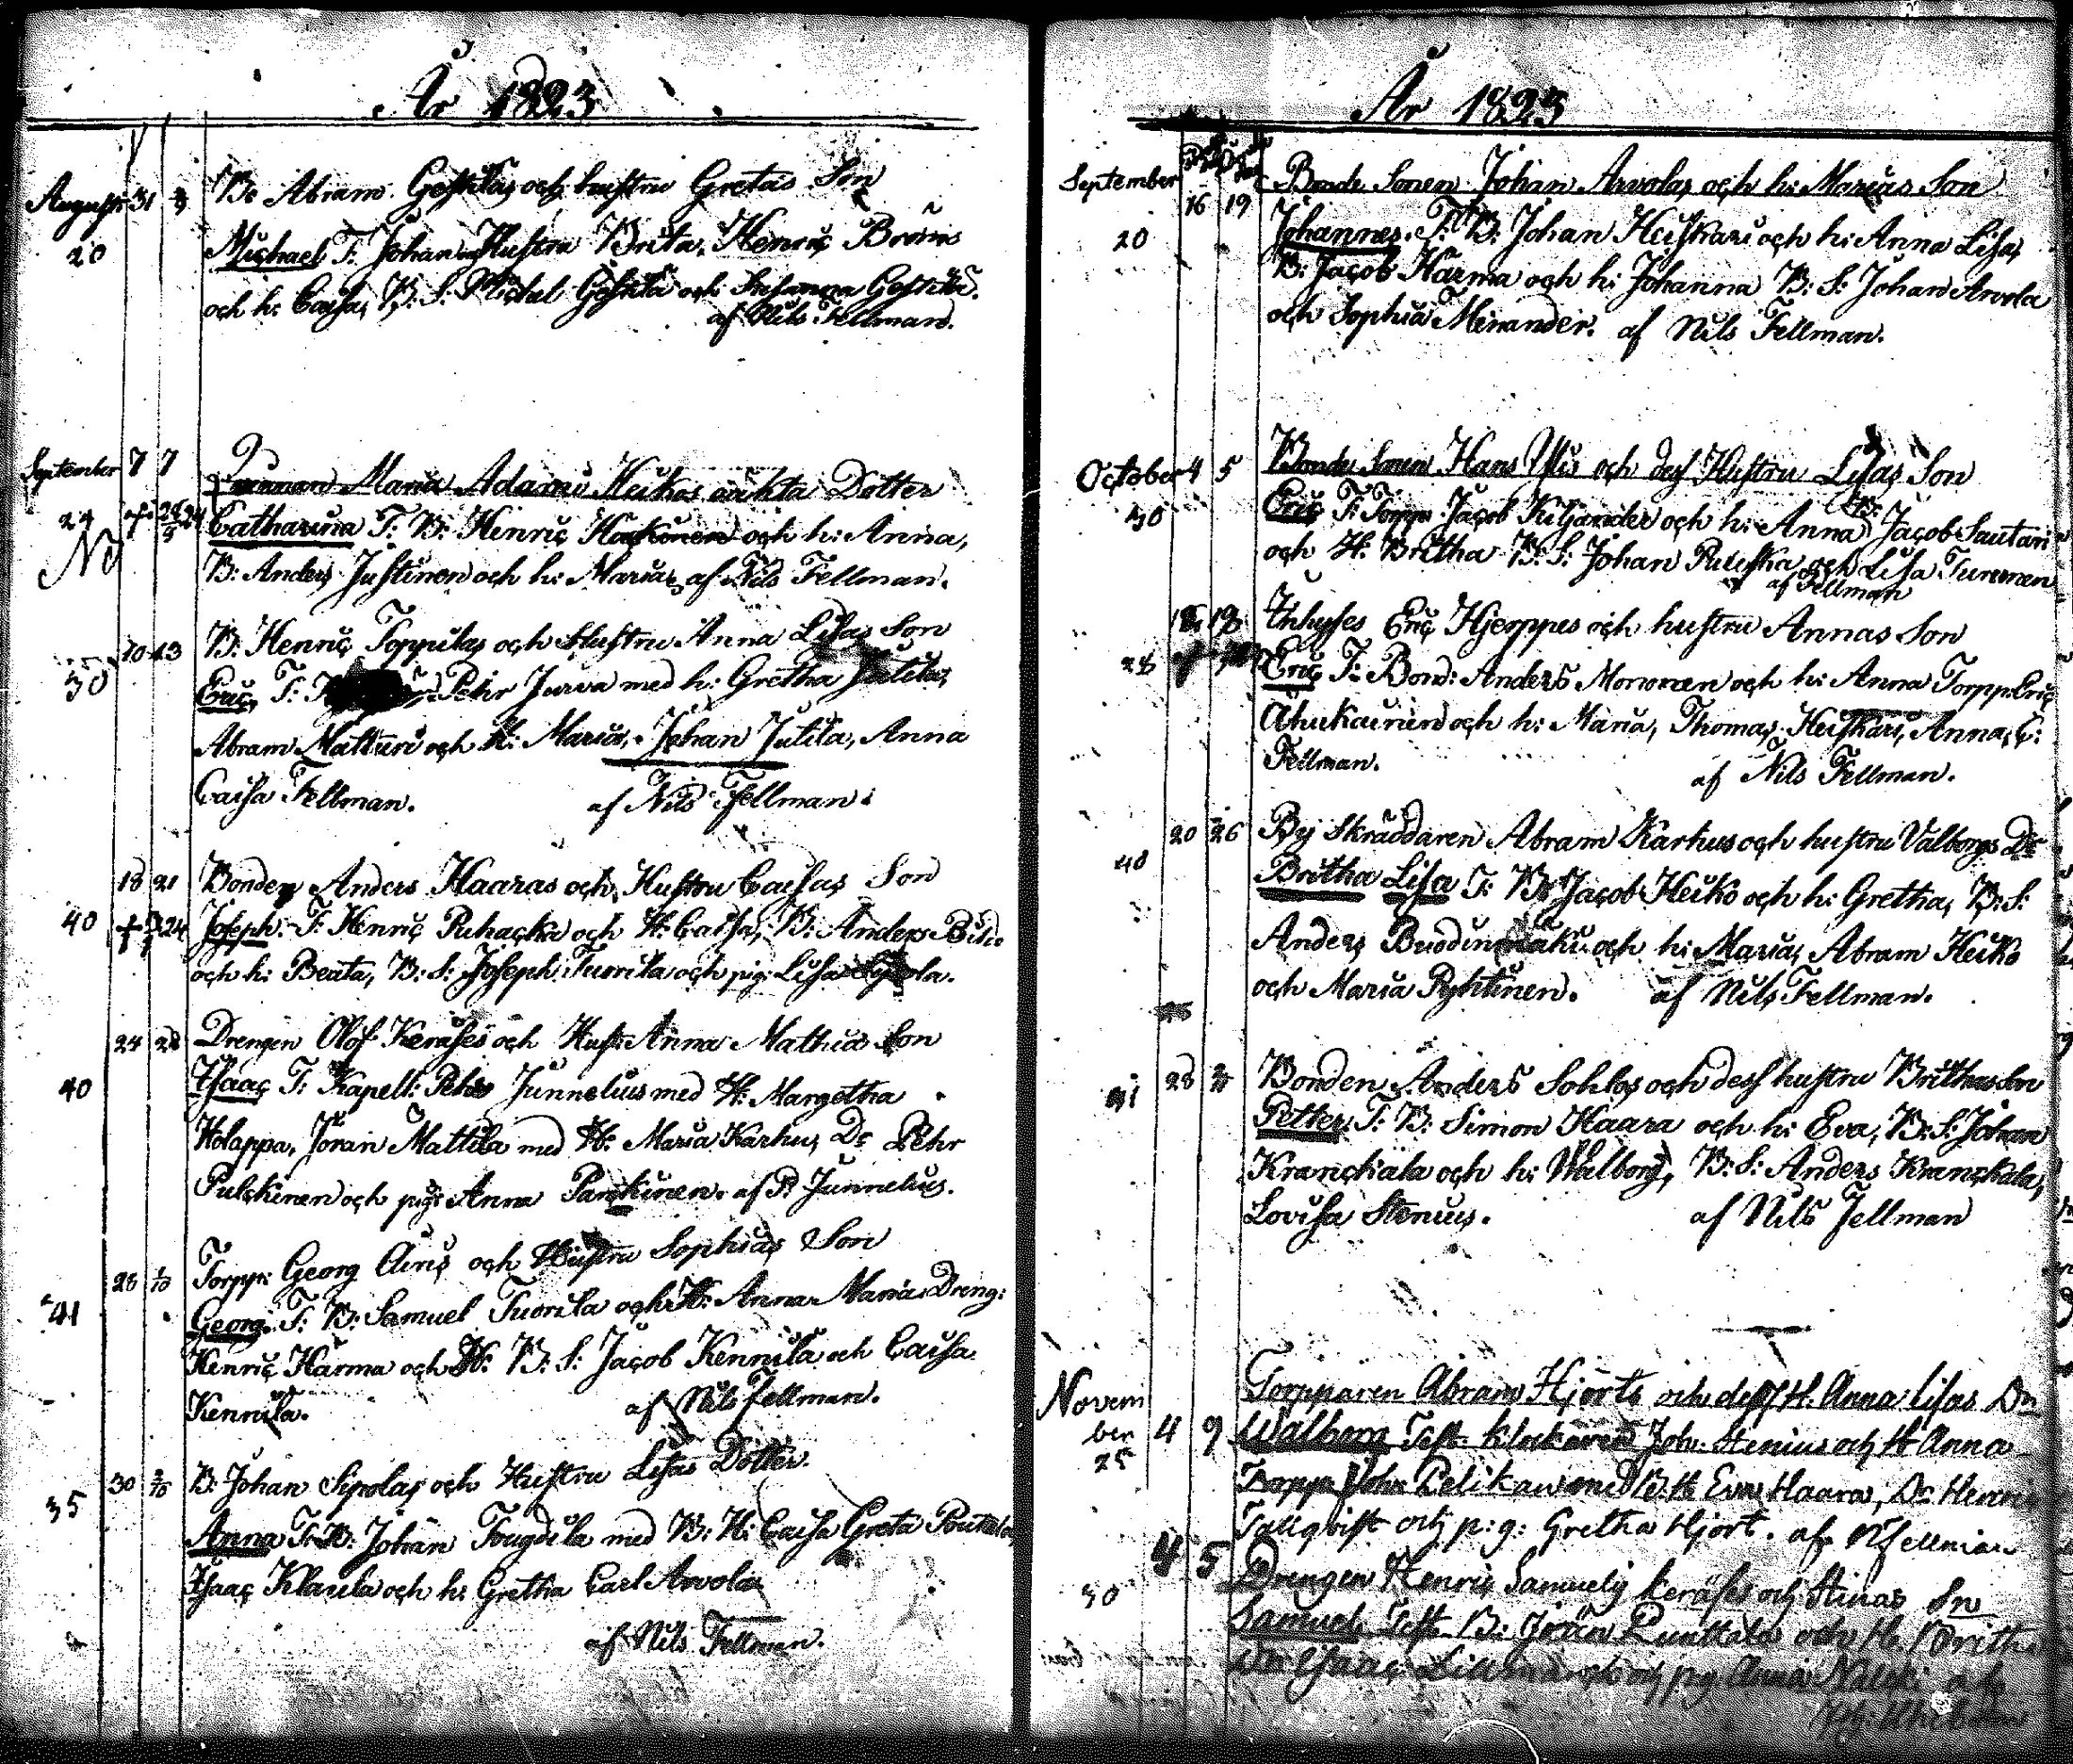 År 1823
Augusti 31 B. Abram Gestilas och hustru Gretas Son
20 Michael T: Johan Hustru Brita, Henric Broms
och h: Caisa, B: S: Michel Gestila och Susanna Gestila.
af Nils Fellman.
September 7 7 Qvinnan Maria Adami Heikos oäkta Dotter
24 Catharina T: B: Henric Hakinen och h: Anna,
No B: Anders Justinen och h: Maria, af Nils Fellman.
10 13 B: Henric Toppilas och Hustru Anna Lisas Son
30 Eric, T: Pehr Jurva med h: Gretha Jutila,
Abram Matturi och H: Maria, Johan Jutila, Anna
Caisa Fellman. af Nils Fellman.
18 21 Bonden Anders Haaras och Hustru Caisas Son
40 Joseph. T: Henric Puhacka och H: Caisa, B: Anders
och h: Beata, B: S: Joseph Tuorila och pig: Lisa
24 28 Drengen Olof Keräses och Hust: Anna Mathia Son
40 Isaac T: Kapell: Pehr Junnelius med H: Margetha
Holappa, Jöran Mattila med H: Maria Karhu, Dr Pehr
Pulckinen och pig: Anna Parckinen. af P. Junnelius.
28 1/10 Torpp: Georg Airis och Hustru Sophias Son
41 Georg. T: B: Samuel Tuorila och H: Anna Maria, Dreng:
Henric Härma och H: B: S: Jacob Kennilä och Caisa
Kennilä. af Nils Fellman.
30 2/10 B: Johan Sipolas och Hustru Lisas Dotter.
35 Anna T: B: Johan Tougdila med B: H: Caisa Greta
Isaac Klaula och h: Gretha Carl Arvola
af Nils Fellman.
År 1823
September Bonde Sonen Johan Arvolas och h: Marias Son
16 19 Johannes. T: B: Johan Heiskari och h: Anna Lisa,
20 B: Jacob Härma och h: Johanna B: S: Johan Arvola
och Sophia Menander. af Nils Fellman.
October 4 5 Bonde Sonen Hans och dess Hustru Lisas Son
30 Eric T: Torpp: Jacob Kiljander och h: Anna Jacob Sautari
och H: Britha B: S: Johan Ruuska och Lisa Turunen
af Fellman
18 19 Inhyses Eric Hjerppes och hustru Annas Son
28 Eric T: Bond: Anders Mononen och h: Anna Torpp: Eric
Ahukainen och h: Maria, Thomas Heiskari, Anna C:
Fellman. af Nils Fellman.
20 26 By Skräddaren Abram Karhus och hustru Valborgs Dr
40 Britha Lisa T: B: Jacob Heiko och h: Gretha, B: S:
Anders och h: Maria, Abram Heiko
och Maria Pyhtinen. af Nils Fellman.
28 Bonden Anders Sohlos och dess hustru Brithas Son
31 Petter. T: B: Simon Haara och h: Eva, B: S: Johan
Kranckala och h: Walborg, B: S: Anders Kranckala,
Lovisa Stenius. af Nils Fellman
Novem Torpparen Abram Hjorts och dess H. Anna Lisas Dr
ber 4 9 Walborg Test. Klockaren Joh: Stenius och H Anna
25 Torpp John Pelikan med B. H Eva Haara, Dr Henric
Taliqvist och p:g: Gretha Hjort. af N Fellman
4 5 Drengen Henric Samuels Keräses och Stinas Sn
30 Samuel Test. B: Jöran och H. Britha
Isaac och pig Anna